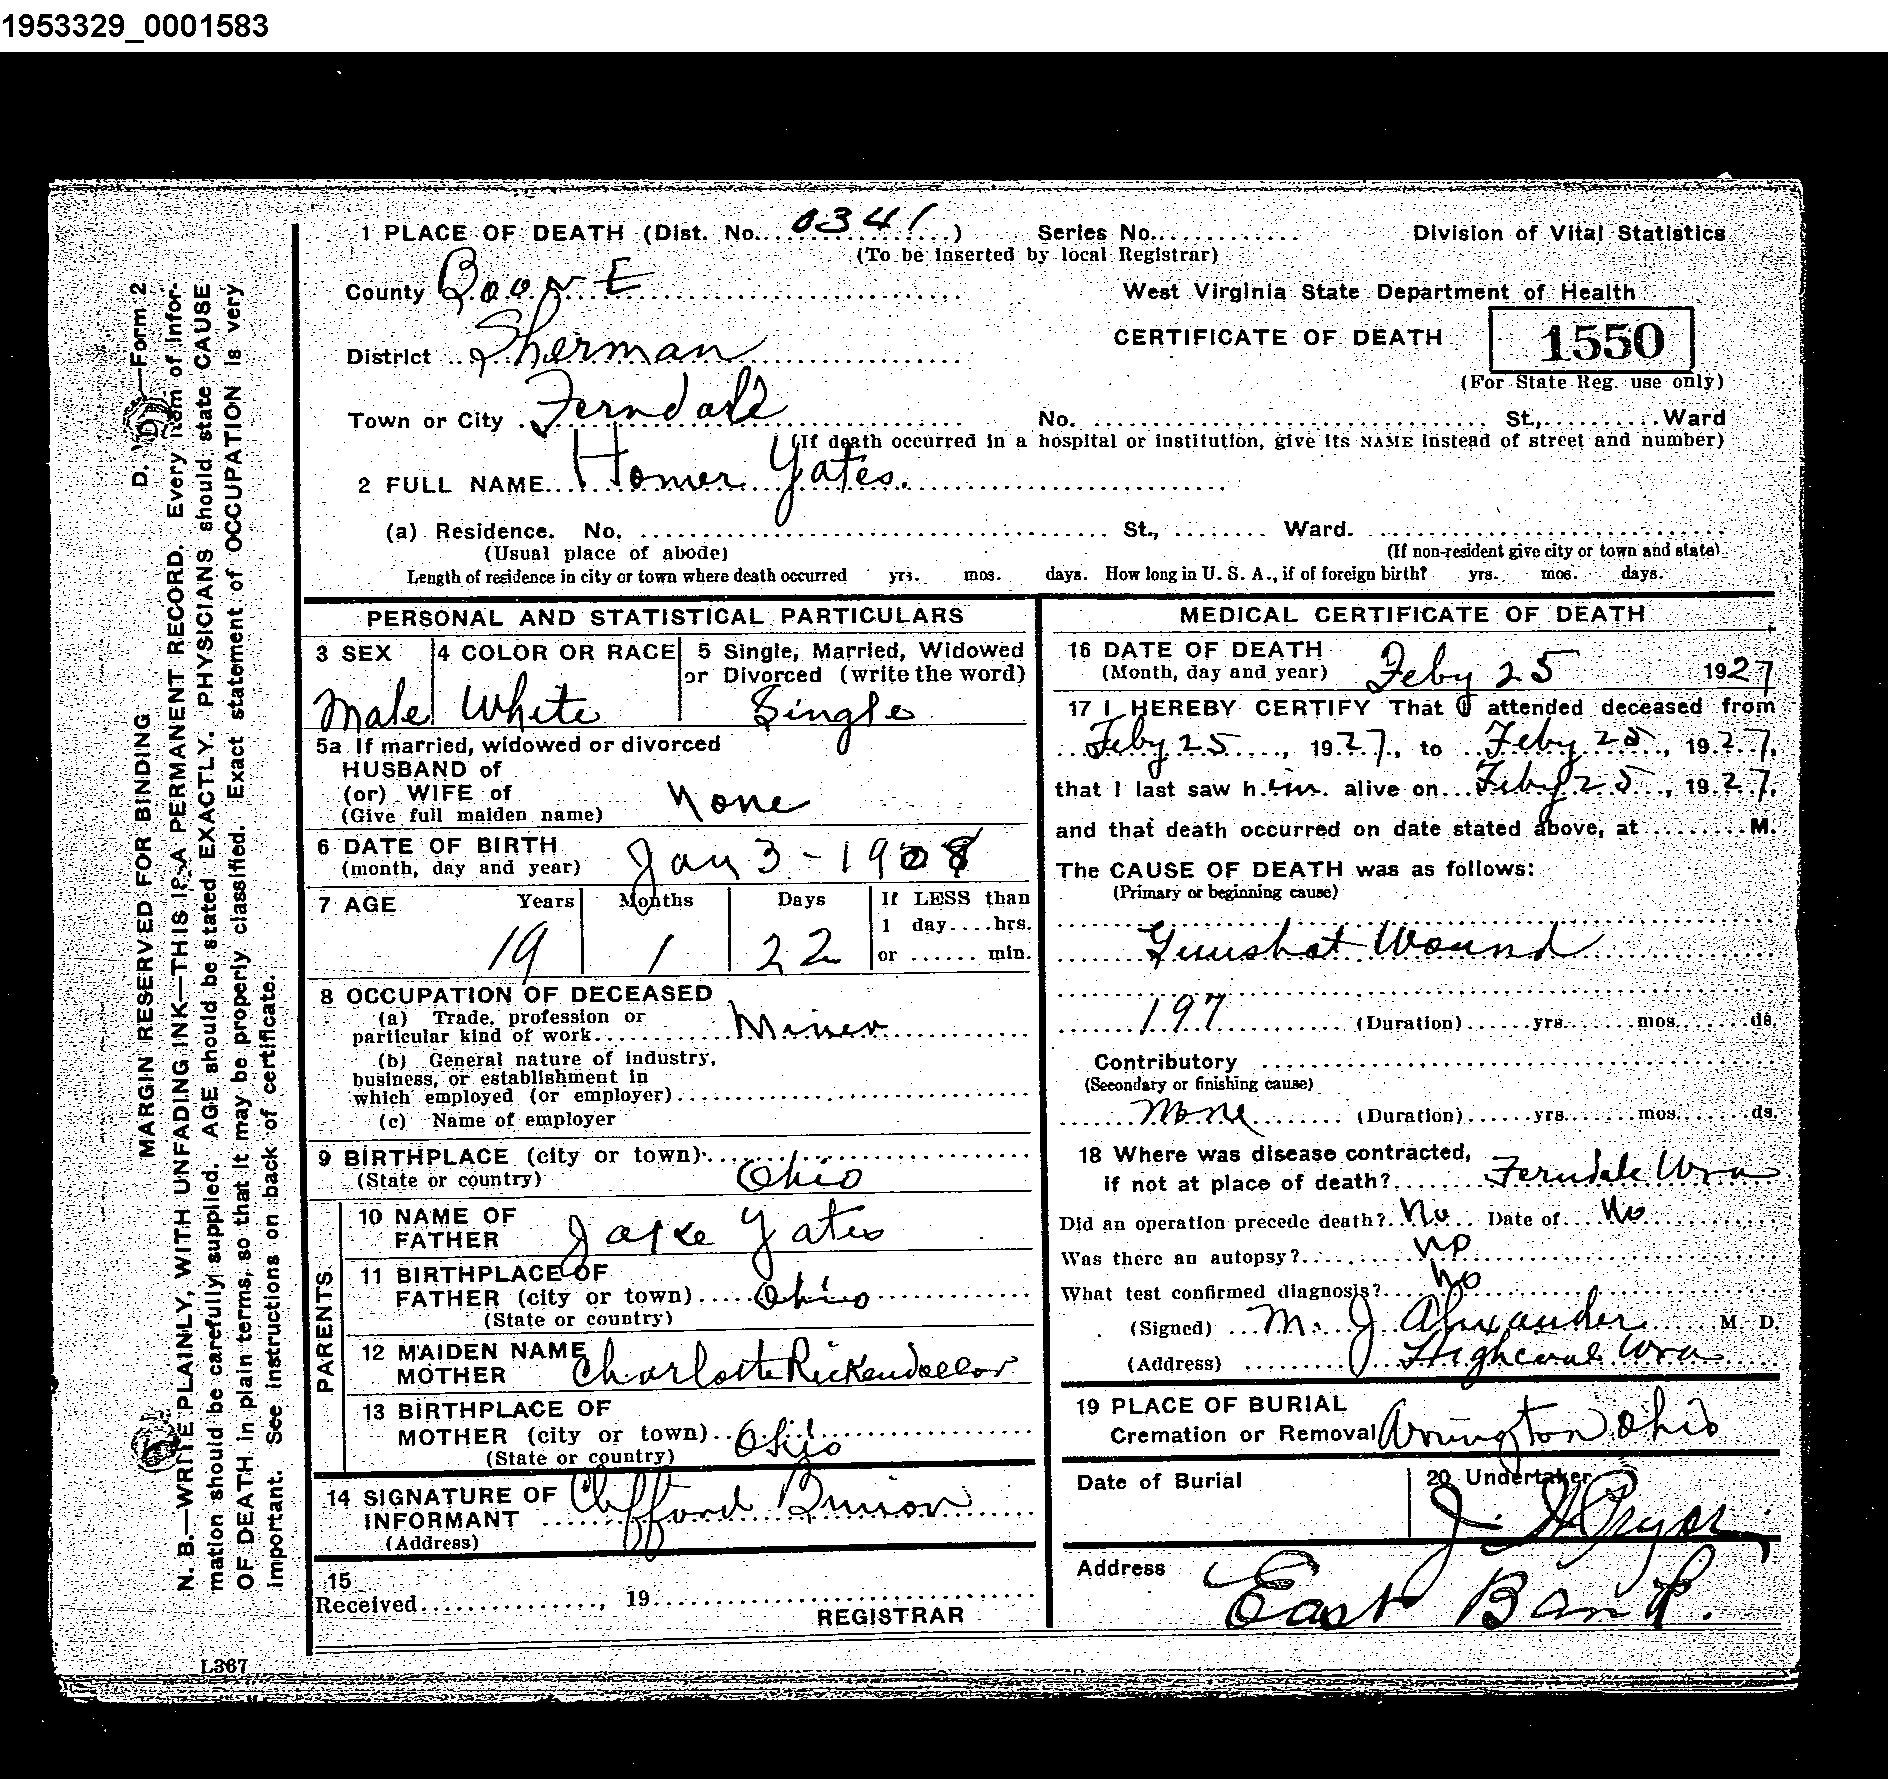 1953329_0001583
1 PLACE OF DEATH (Dist. No. 0341) Series No. Division of Vital Statistics
(To be inserted by local Registrar)
County Boone West Virginia State Department of Health
District Sherman CERTIFICATE OF DEATH 1550
(For State Reg. use only)
Town or City Ferndale No. St., Ward
(If death occurred in a hospital or institution, give its NAME instead of street and number)
2 FULL NAME Homer Yates.
(a) Residence. No. St., Ward.
(Usual place of abode) (If non-resident give city or town and state)
Length of residence in city or town where death occurred yrs. mos. days. How long in U. S. A., if of foreign birth? yrs. mos. days.
PERSONAL AND STATISTICAL PARTICULARS
3 SEX 4 COLOR OR RACE 5 Single, Married, Widowed
or Divorced (write the word)
Male White Single
5a If married, widowed or divorced
HUSBAND of
(or) WIFE of None
(Give full maiden name)
6 DATE OF BIRTH
(month, day and year) Jan 3-1908
7 AGE Years Months Days If LESS than
1 day....hrs.
19 1 22 or ...... min.
8 OCCUPATION OF DECEASED
(a) Trade, profession or
particular kind of work Miner
(b) General nature of industry,
business, or establishment in
which employed (or employer)
(c) Name of employer
9 BIRTHPLACE (city or town)
(State or country) Ohio
PARENTS
10 NAME OF
FATHER Jake Yates
11 BIRTHPLACE OF
FATHER (city or town) Ohio
(State or country)
12 MAIDEN NAME
MOTHER Charlotte
13 BIRTHPLACE OF
MOTHER (city or town) Ohio
(State or country)
14 SIGNATURE OF
INFORMANT Clifford
(Address)
15
Received , 19
REGISTRAR
MEDICAL CERTIFICATE OF DEATH
16 DATE OF DEATH
(Month, day and year) Feby 25 1927
17 I HEREBY CERTIFY That I attended deceased from
Feby 25, 1927, to Feby 25, 1927,
that I last saw him alive on Feby 25, 1927,
and that death occurred on date stated above, at M.
The CAUSE OF DEATH was as follows:
(Primary or beginning cause)
Gunshot Wound
197 (Duration) yrs. mos. ds.
Contributory
(Secondary or finishing cause)
None (Duration) yrs. mos. ds.
18 Where was disease contracted,
if not at place of death? Ferndale Wva
Did an operation precede death? No Date of No
Was there an autopsy? No
What test confirmed diagnosis? No
(Signed) M. J. Alexander M. D.
(Address) Highcoal Wva
19 PLACE OF BURIAL
Cremation or Removal Ohio
Date of Burial 20 Undertaker
J. Pryor
Address
East Bank.
D. D.—Form 2
MARGIN RESERVED FOR BINDING
N. B.—WRITE PLAINLY, WITH UNFADING INK—THIS IS A PERMANENT RECORD. Every item of infor-
mation should be carefully supplied. AGE should be stated EXACTLY. PHYSICIANS should state CAUSE
OF DEATH in plain terms, so that it may be properly classified. Exact statement of OCCUPATION is very
important. See instructions on back of certificate.
L367